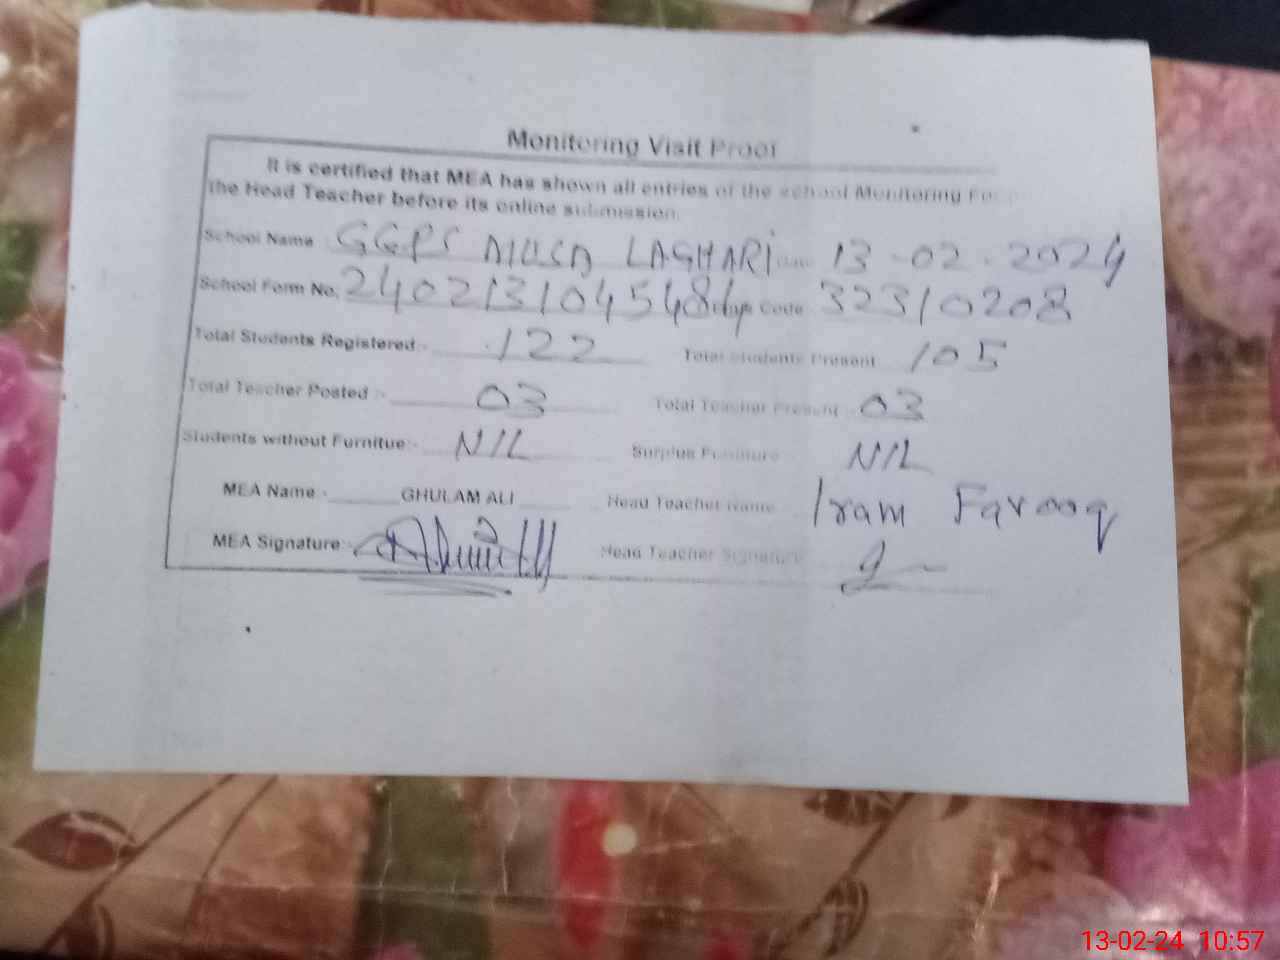 Monitoring Visit Proof
It is certified that MEA has shown all entries of the school Monitoring
the Head Teacher before its online submission.
School Name GGPS MUSA LAGHARI Date 13-02-2024
School Form No. Code 32310208
Total Students Registered:- 122 Total Students Present 105
Total Teacher Posted :- 03 Total Teacher Present :- 03
Students without Furnitue:- NIL Surplus Furniture :- NIL
MEA Name:- GHULAM ALI Head Teacher Name Iram Farooq
MEA Signature:- Head Teacher Signature
13-02-24 10:57